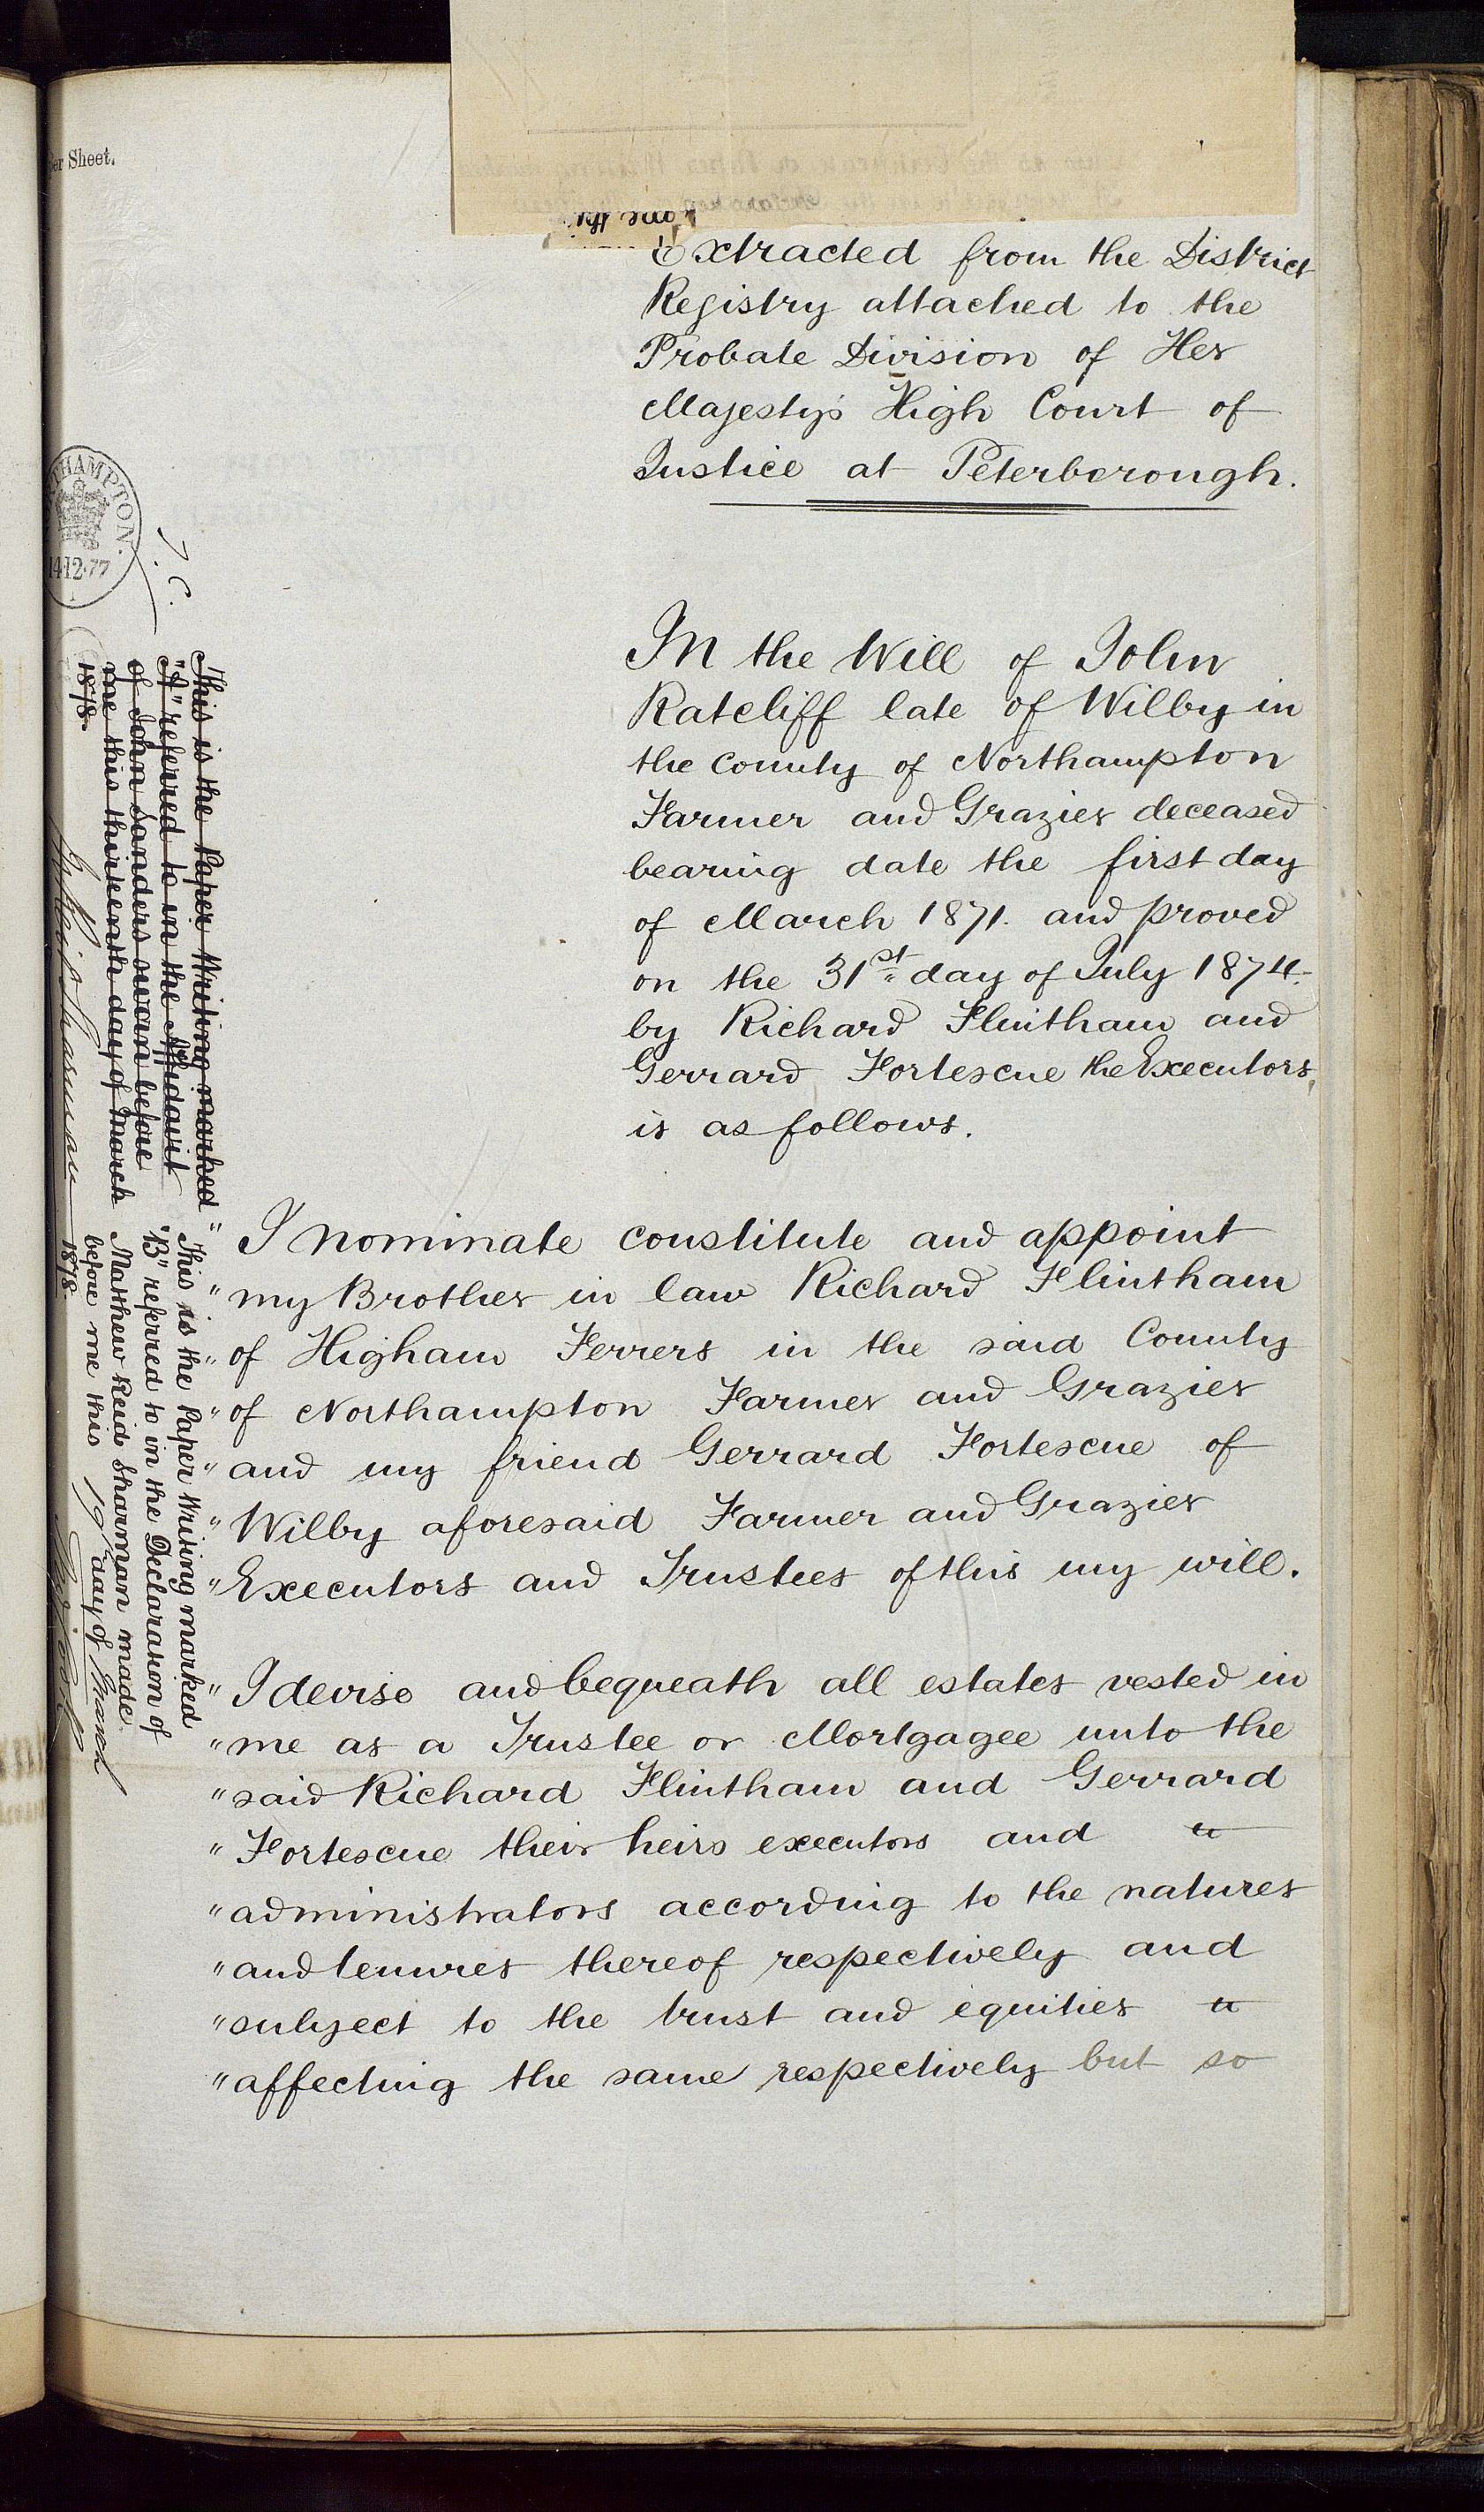 er Sheet.
Extracted from the District
Registry attached to the
Probate Division of Her
Majesty's High Court of
Justice at Peterborough.
THAMPTON.
14·12·77
J. C.
In the Will of John
Ratcliff late of Wilby in
the County of Northampton
Farmer and Grazier deceased
bearing date the first day
of March 1871. and proved
on the 31st day of July 1874.
by Richard Flintham and
Gerrard Fortescue the Executors,
is as follows.
This is the Paper Writing marked
"A" referred to in the Affidavit
of John Sanders sworn before
me this thirteenth day of March
1878.
" I nominate constitute and appoint
" my Brother in law Richard Flintham
" of Higham Ferrers in the said County
" of Northampton Farmer and Grazier
" and my friend Gerrard Fortescue of
" Wilby aforesaid Farmer and Grazier
" Executors and Trustees of this my will.
This is the Paper Writing marked
"B" referred to in the Declaration of
Matthew Reid Sharman made
before me this 19th day of March
1878.
" I devise and bequeath all estates vested in
" me as a Trustee or Mortgagee unto the
" said Richard Flintham and Gerrard
" Fortescue their heirs executors and
" administrators according to the natures
" and tenures thereof respectively and
" subject to the trust and equities
" affecting the same respectively but so